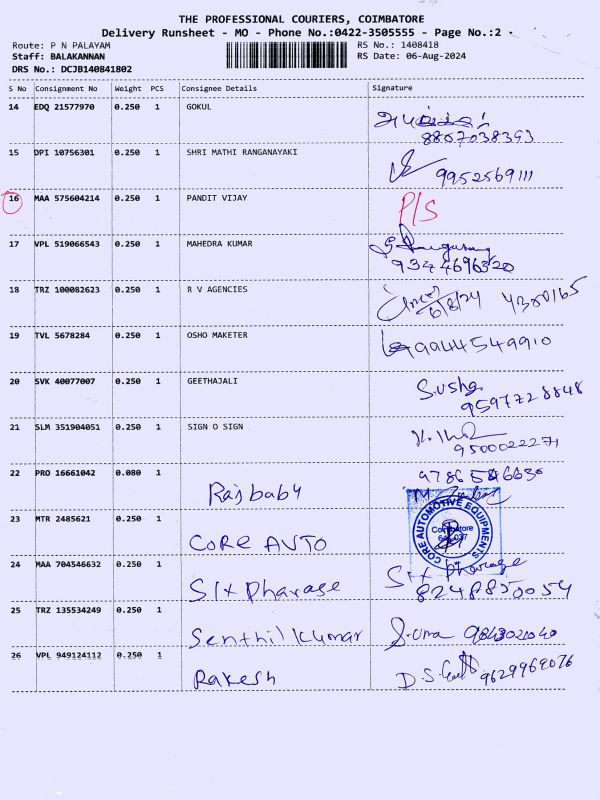 THE PROFESSIONAL COURIERS, COIMBATORE
Delivery Runsheet - MO - Phone No.:0422-3505555 - Page No.:2 -
Route: P N PALAYAM
RS No.: 1408418
Staff: BALAKANNAN
RS Date: 06-Aug-2024
DRS No.: DCJB140841802
S No Consignment No Weight PCS Consignee Details Signature
14 EDQ 21577970 0.250 1 GOKUL
8807038393
15 DPI 10756301 0.250 1 SHRI MATHI RANGANAYAKI
9952569111
16 MAA 575604214 0.250 1 PANDIT VIJAY P/S
17 VPL 519066543 0.250 1 MAHEDRA KUMAR
9344696320
18 TRZ 100082623 0.250 1 R V AGENCIES
6/8/24
19 TVL 5678284 0.250 1 OSHO MAKETER 9944549910
20 SVK 40077007 0.250 1 GEETHAJALI S.usha
9597728848
21 SLM 351904051 0.250 1 SIGN O SIGN
9500022271
22 PRO 16661042 0.080 1 Rajbaby
23 MTR 2485621 0.250 1 CORE AUTO
CORE AUTOMOTIVE EQUIPMENTS
Coimbatore
24 MAA 704546632 0.250 1 SIX Pharase Six Pharase
8248850054
25 TRZ 135534249 0.250 1 Senthil Kumar S.uma 9843020040
26 VPL 949124112 0.250 1 Rakesh D.S. 9629969076